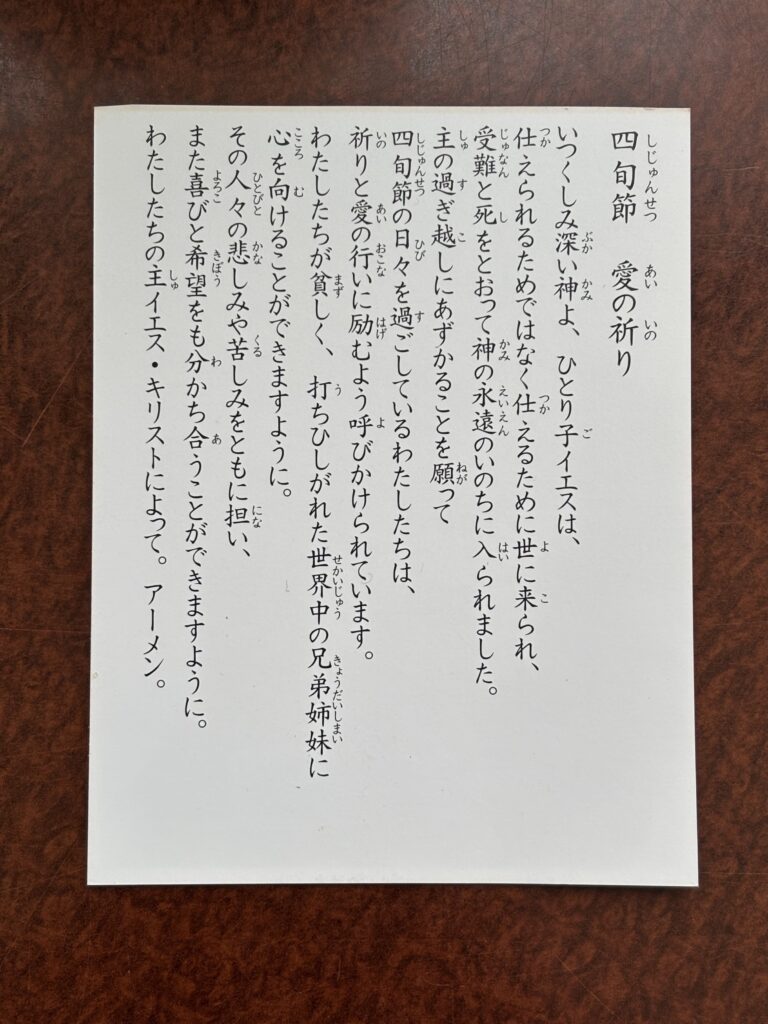 四旬節　愛の祈り
いつくしみ深い神よ、ひとり子イエスは、
仕えられるためではなく仕えるために世に来られ、
受難と死をとおって神の永遠のいのちに入られました。
主の過ぎ越しにあずかることを願って
四旬節の日々を過ごしているわたしたちは、
祈りと愛の行いに励むよう呼びかけられています。
わたしたちが貧しく、打ちひしがれた世界中の兄弟姉妹に
心を向けることができますように。
その人々の悲しみや苦しみをともに担い、
また喜びと希望をも分かち合うことができますように。
わたしたちの主イエス・キリストによって。アーメン。